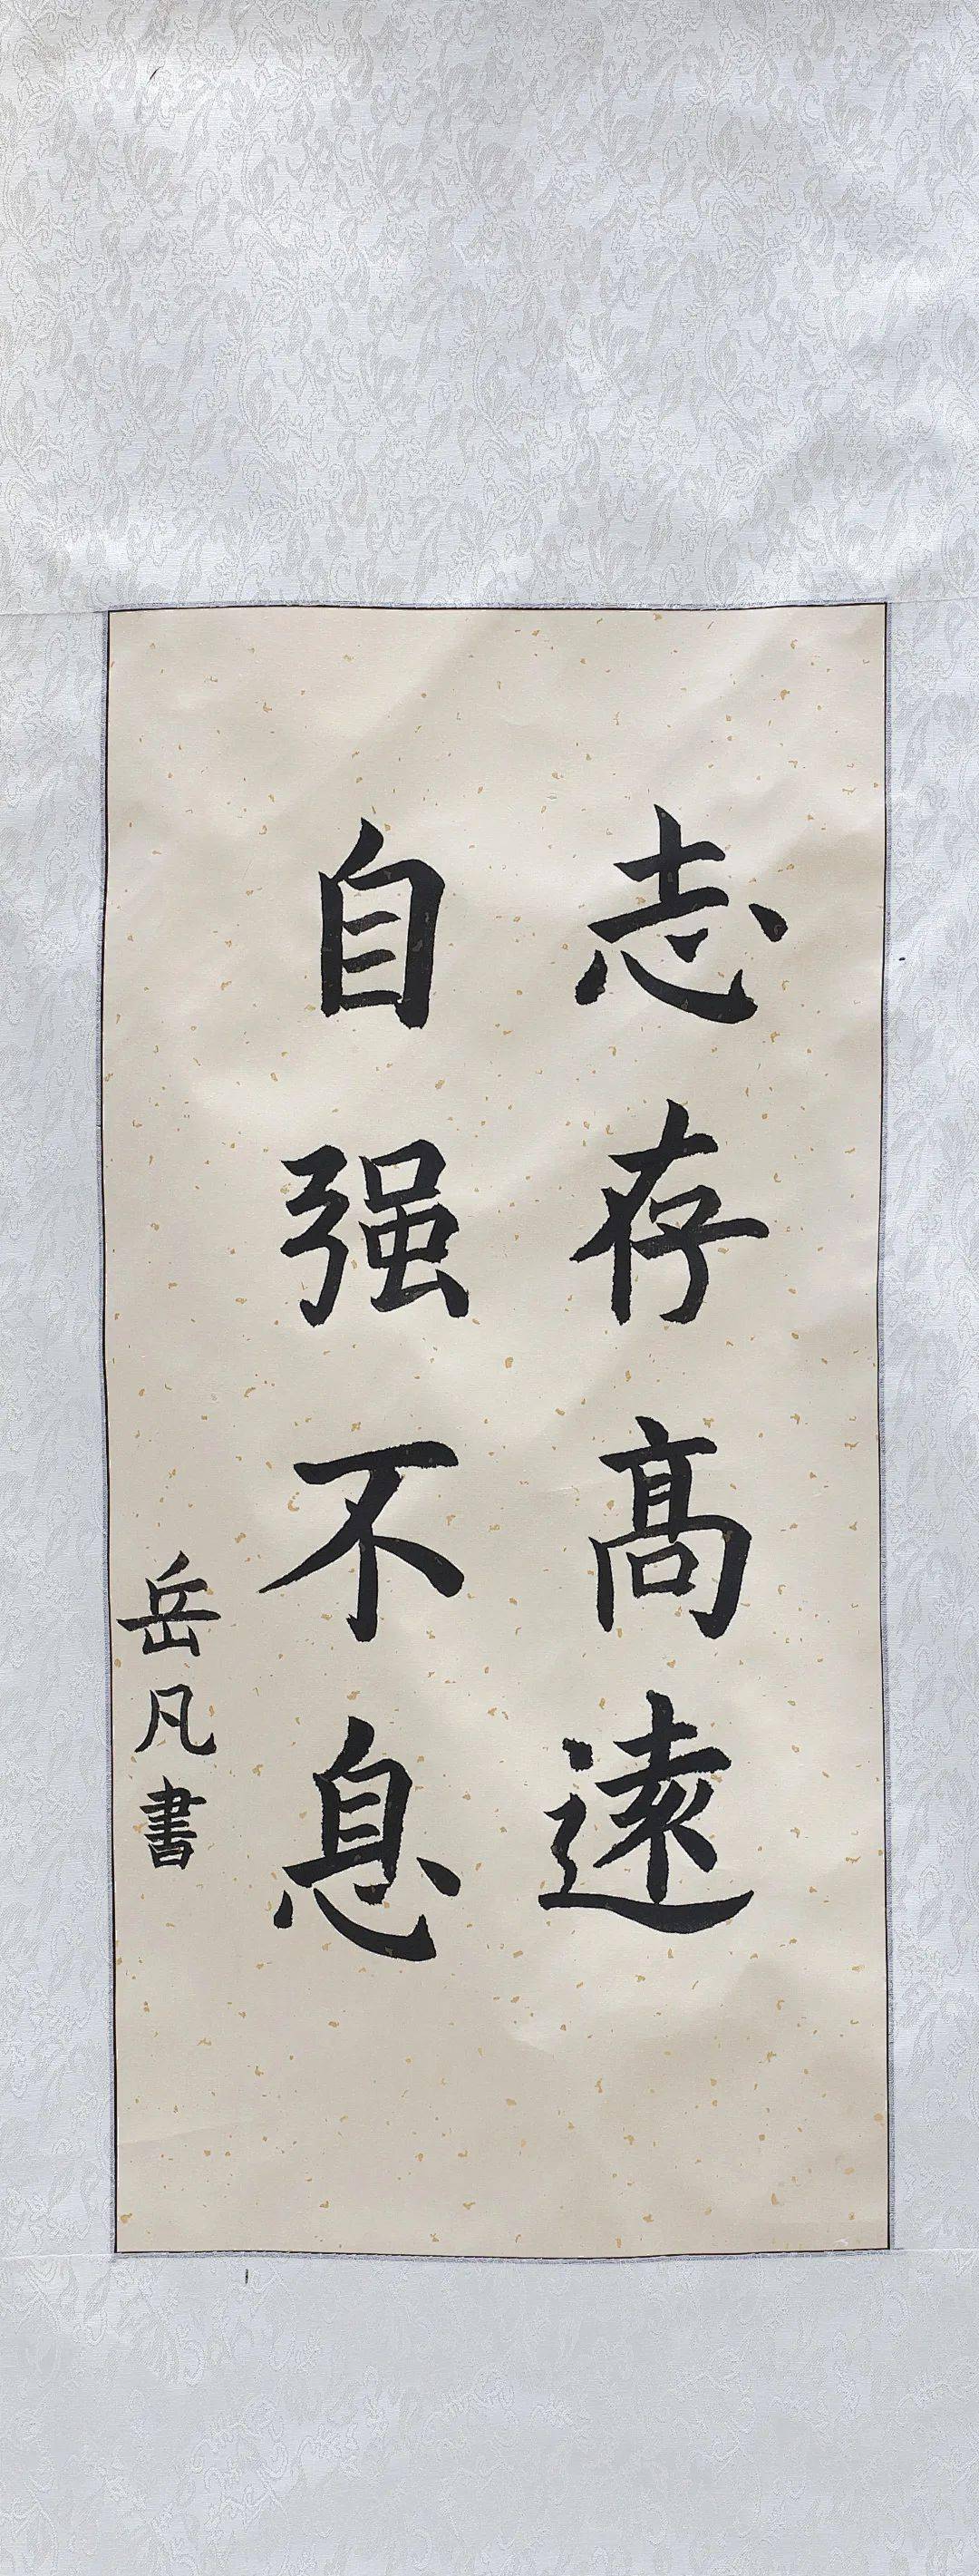 志存髙遠
自强不息
岳凡書